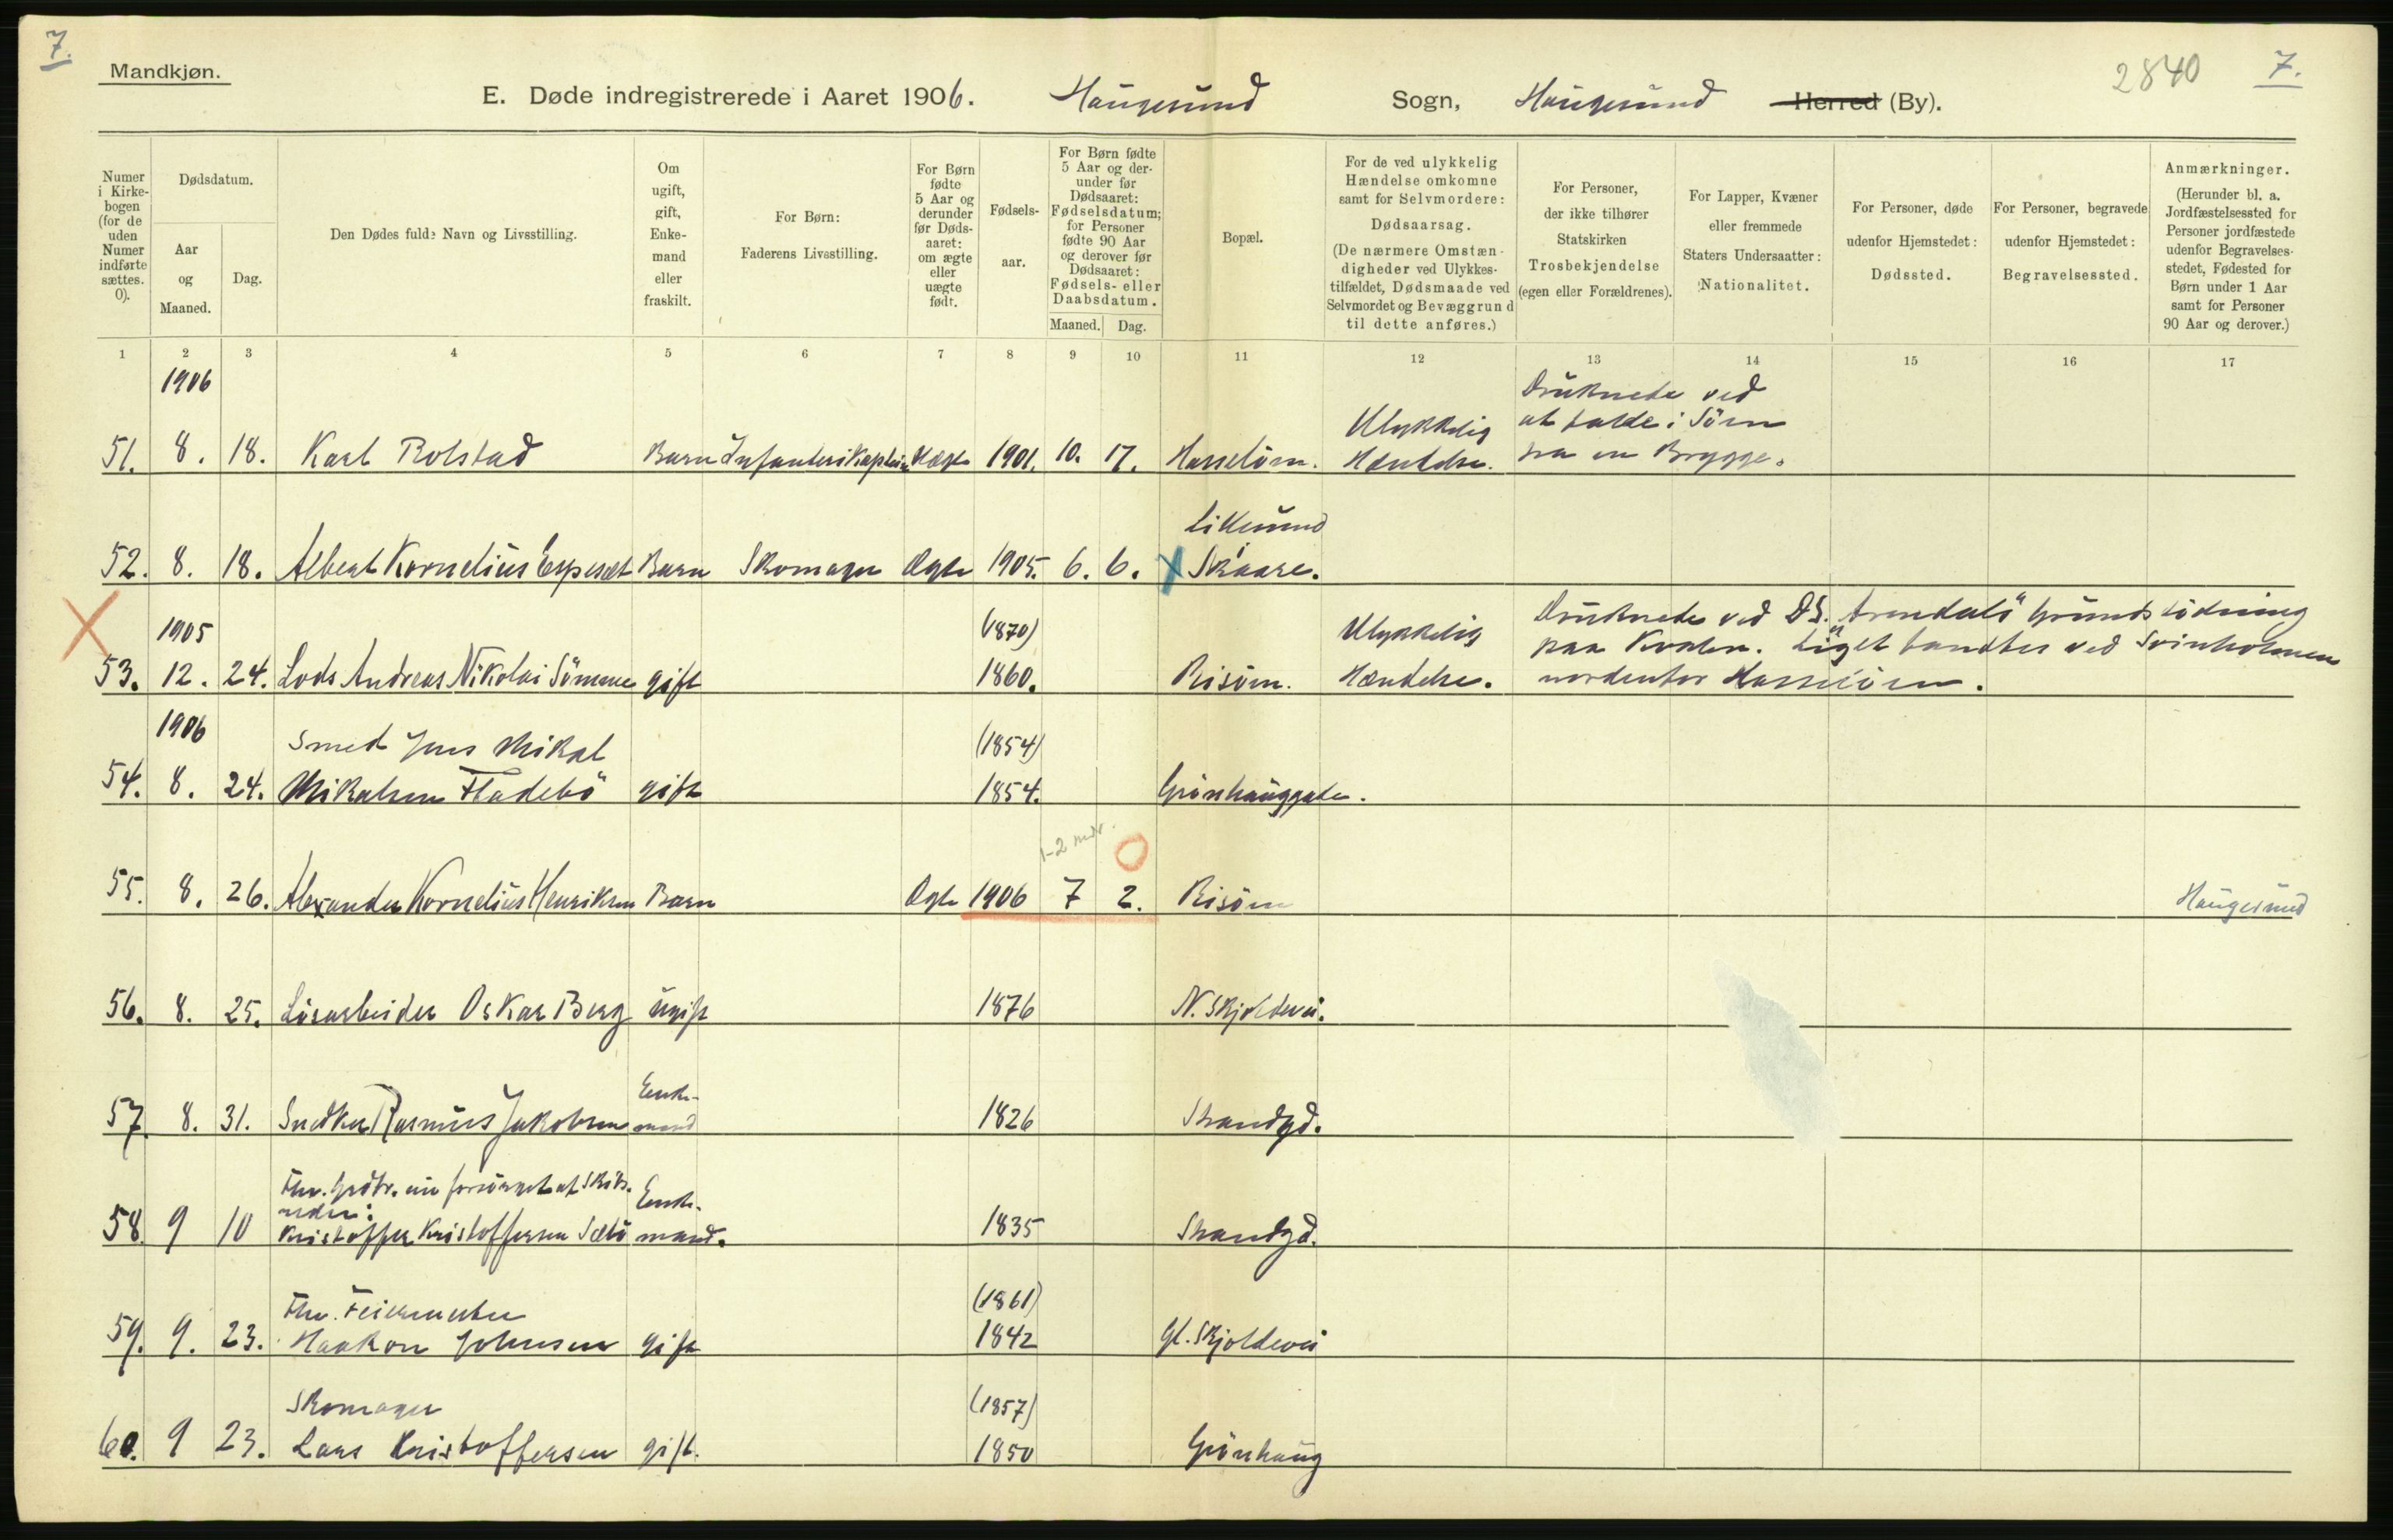 7.
Mandkjøn.
2840
7.
E. Døde indregistrerede i Aaret 1906. Haugesund Sogn, Haugesund Herred (By).
Numer i Kirke-bogen (for de uden Numer indførte sættes. 0).
Dødsdatum.
Aar og Maaned.
Dag.
Den Dødes fulde Navn og Livsstilling.
Om ugift, gift, Enke-mand eller fraskilt.
For Børn: Faderens Livsstilling.
For Børn fødte 5 Aar og derunder før Døds-aaret: om ægte eller uægte født.
Fødsels-aar.
For Børn fødte 5 Aar og der-under før Dødsaaret: Fødselsdatum; for Personer fødte 90 Aar og derover før Dødsaaret: Fødsels- eller Daabsdatum.
Maaned. Dag.
Bopæl.
For de ved ulykkelig Hændelse omkomne samt for Selvmordere: Dødsaarsag. (De nærmere Omstæn-digheder ved Ulykkes-tilfældet, Dødsmaade ved Selvmordet og Bevæggrund til dette anføres.)
For Personer, der ikke tilhører Statskirken Trosbekjendelse (egen eller Forældrenes).
For Lapper, Kvæner eller fremmede Staters Undersaatter: Nationalitet.
For Personer, døde udenfor Hjemstedet: Dødssted.
For Personer, begravede udenfor Hjemstedet: Begravelsessted.
Anmærkninger. (Herunder bl. a. Jordfæstelsessted for Personer jordfæstede udenfor Begravelses-stedet, Fødested for Børn under 1 Aar samt for Personer 90 Aar og derover.)
1 2 3 4 5 6 7 8 9 10 11 12 13 14 15 16 17
1906
Druknede ved
Ulykkelig at falde i Söen
51. 8. 18. Karl Rolstad Barn Infanterikaptein Uægte 1901. 10. 17. Hasselöen. Hændelse. fra en Brygge.
Lillesund
52. 8. 18. Albert Kornelius Espeset Barn Skomager Ægte 1905. 6. 6. X Skaare.
X 1905 (1870) Ulykkelig Druknede ved DS. "Arendals" Grundstödning
paa Kvalen. Liget fandtes ved Svinholmen
53. 12. 24. Lods Andreas Nikolai Sömme gift 1860. Risöen. Hændelse. nordenfor Hasselöen.
1906 Smed Jens Mikal (1854)
54. 8. 24. Mikalsen Fladebö gift 1854. Grönhauggaten.
1-2 mdr. O
55. 8. 26. Alexander Kornelius Henriksen Barn Ægte 1906 7 2. Risöen Haugesund
56. 8. 25. Lösarbeider Oskar Berg ugift 1876 N. Skjoldevei.
Enke-
57. 8. 31. Snedker Rasmus Jakobsen mand 1826 Strandgd.
Fhv. nu forsörget af
Enke-
58. 9 10 Kristoffer Kristoffersen Sætö mand. 1835 Strandgd.
Fhv. Feiermester (1861)
59. 9. 23. Haakon Johnsen gift 1842 Gl. Skjoldevei
Skomager (1857)
60. 9 23. Lars Kristoffersen gift. 1850 Grönhaug